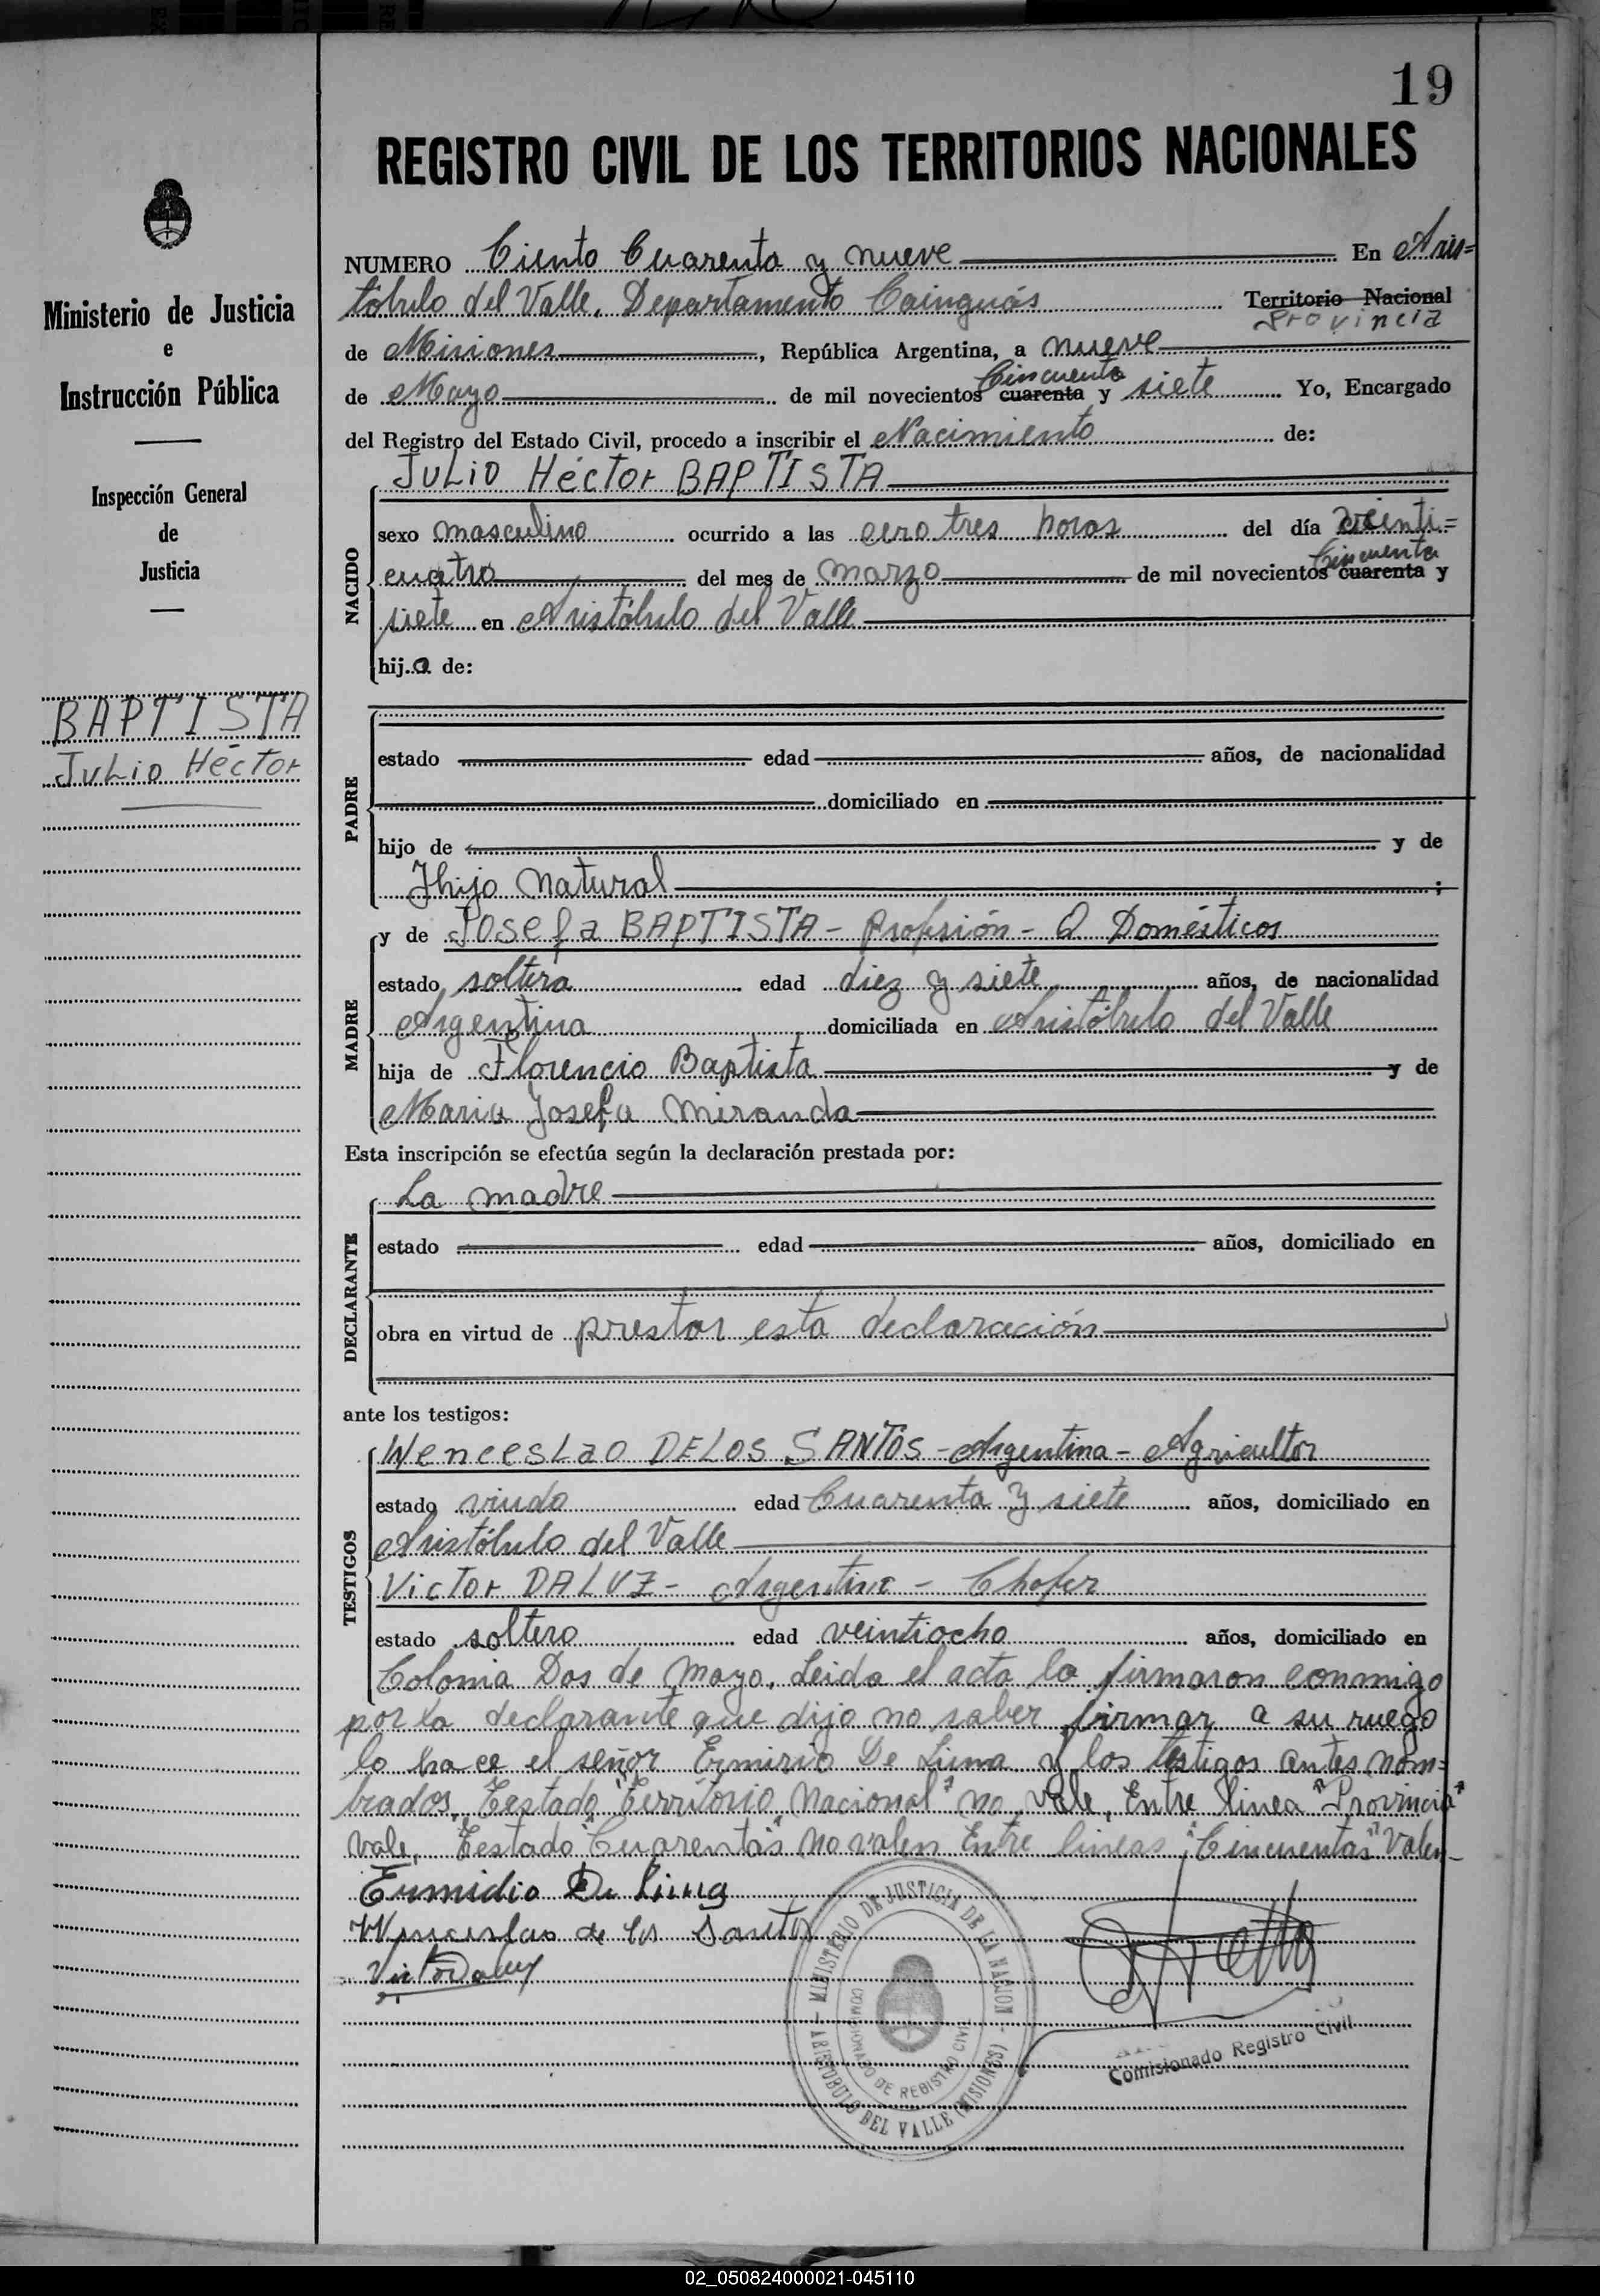 19
REGISTRO CIVIL DE LOS TERRITORIOS NACIONALES
Ministerio de Justicia
e
Instrucción Pública
Inspección General
de
Justicia
BAPTISTA
Julio Héctor
NUMERO Ciento Cuarenta y nueve En Aris=
tóbulo del Valle. Departamento Cainguás Territorio Nacional
Provincia
de Misiones, República Argentina, a nueve
Cincuenta
de Mayo de mil novecientos cuarenta y siete Yo, Encargado
del Registro del Estado Civil, procedo a inscribir el Nacimiento de:
JULIO Héctor BAPTISTA
NACIDO
sexo masculino ocurrido a las cero tres horas del día veinti=
Cincuenta
cuatro del mes de marzo de mil novecientos cuarenta y
siete en Aristóbulo del Valle
hijo de:
PADRE
estado edad años, de nacionalidad
domiciliado en
hijo de y de
Hijo Natural ;
MADRE
y de Josefa BAPTISTA - Profesión - Q Domésticos
estado soltera edad diez y siete años, de nacionalidad
Argentina domiciliada en Aristóbulo del Valle
hija de Florencio Baptista y de
Maria Josefa Miranda
Esta inscripción se efectúa según la declaración prestada por:
DECLARANTE
La madre
estado edad años, domiciliado en
obra en virtud de prestar esta declaración
ante los testigos:
TESTIGOS
Wenceslao DELOS SANTOS - Argentina - Agricultor
estado viudo edad Cuarenta y siete años, domiciliado en
Aristóbulo del Valle
Victor DALUZ - Argentina - Chofer
estado soltero edad veintiocho años, domiciliado en
Colonia Dos de Mayo. Leida el acta la firmaron conmigo
por la declarante que dijo no saber firmar a su ruego
lo hace el señor Ermirio De Lima y los testigos antes nom=
brados. Testado "Territorio Nacional" no vale, Entre linea "Provincia"
vale, Testado "Cuarentas" no valen Entre lineas "Cincuentas" Valen
Ermidio De Lima
Wenceslao de los Santos
Victor Daluz
MINISTERIO DE JUSTICIA DE LA NACION
COMISIONADO DE REGISTRO CIVIL
ARISTOBULO DEL VALLE (MISIONES)
Comisionado Registro Civil
02_050824000021-045110